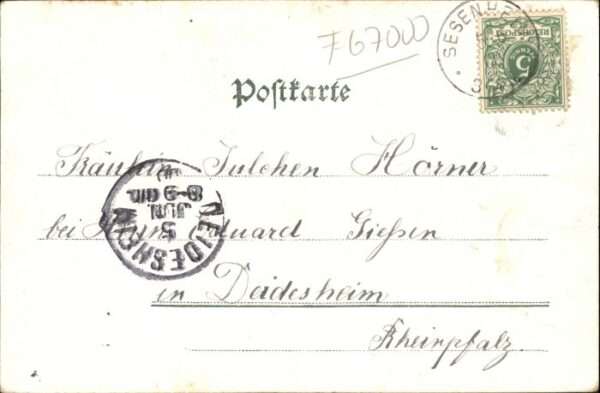 F67000
SESENHE
REICHSPOST
5
Postkarte
Fräulein Julchen Hörner
bei Herrn Eduard Gießen
in Deidesheim
Rheinpfalz.
DEIDESHEIM
5
JUN.
8-9